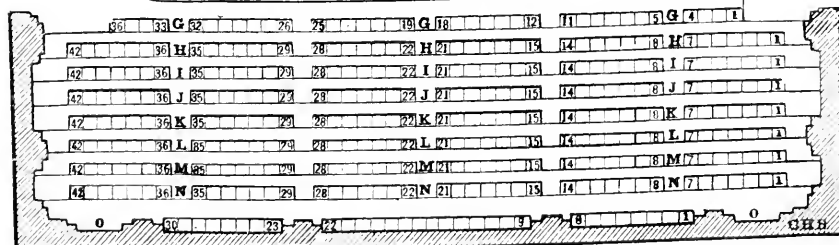 36 33 G 32 26 25 19 G 18 12 11 5 G 4 1
42 36 H 35 29 28 22 H 21 15 14 8 H 7 1
42 36 I 35 29 28 22 I 21 15 14 8 I 7 1
42 36 J 35 29 28 22 J 21 15 14 8 J 7 1
42 36 K 35 29 28 22 K 21 15 14 8 K 7 1
42 36 L 35 29 28 22 L 21 15 14 8 L 7 1
42 36 M 35 29 28 22 M 21 15 14 8 M 7 1
42 36 N 35 29 28 22 N 21 15 14 8 N 7 1
O 30 23 22 9 8 1 O